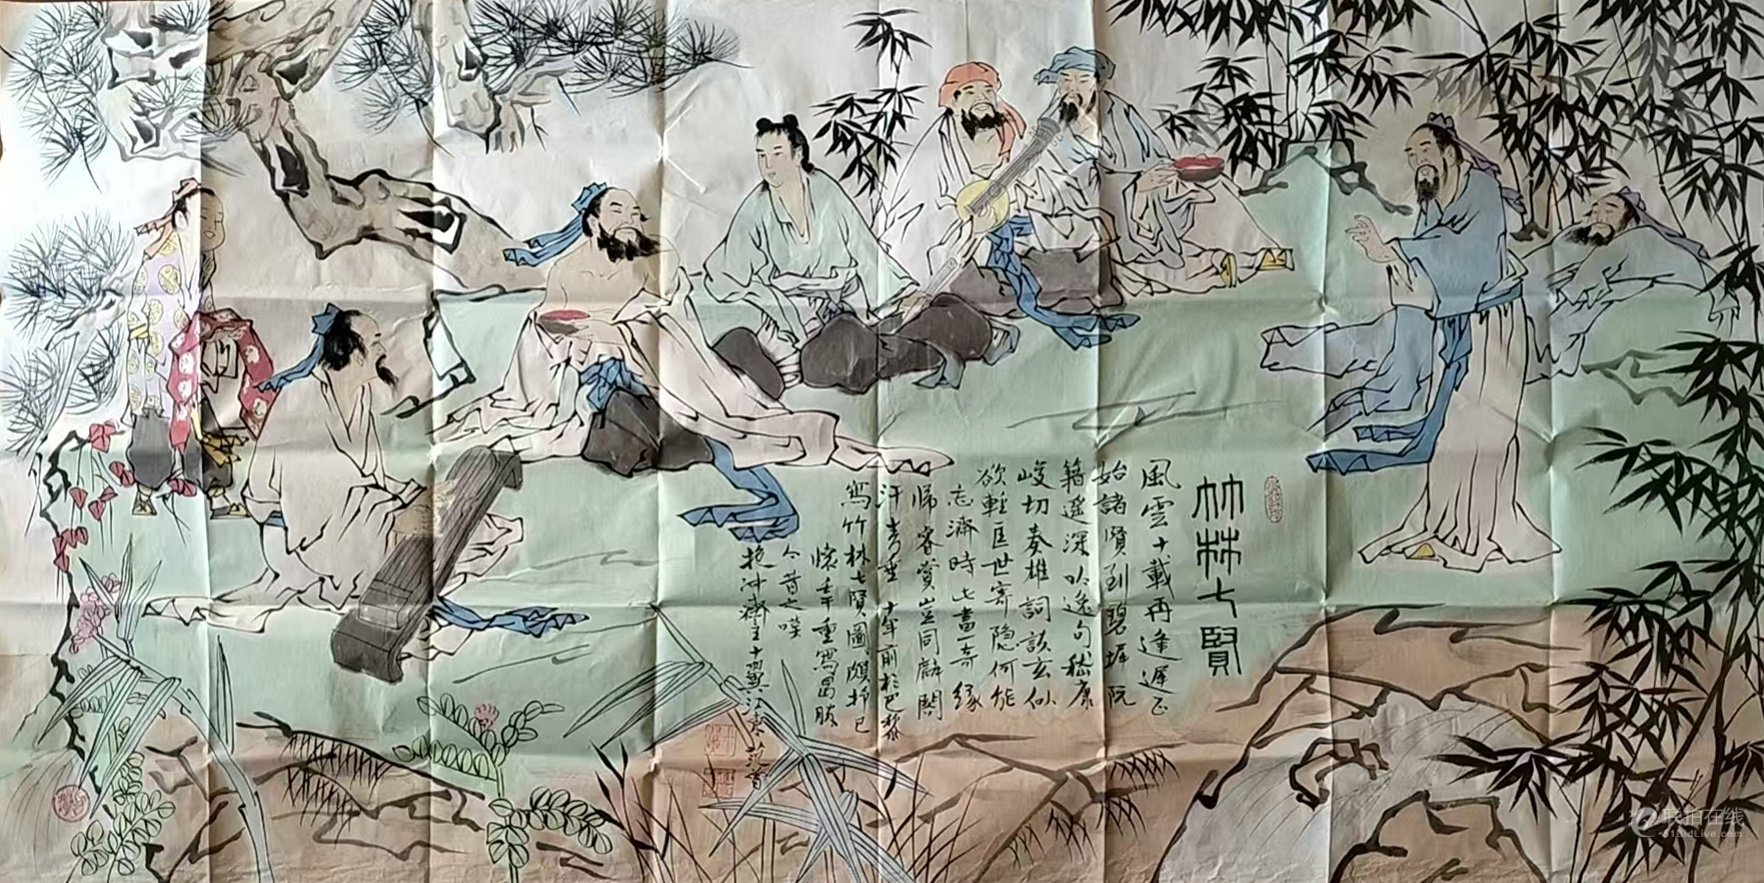 竹林七賢
風雲十載再逢遲正
始諸賢到碧墀阮
籍遙深吟逸句嵇康
峻切奏雄詞談玄似
欲輕匡世寄隐何能
忘濟時此畫一奇緣
帰睿賞豈同麟閣
汗青垂 十年前於巴黎
寫竹林七賢圖頗抒己
懷壬午重寫曷勝
今昔之嘆
抱沖齋主十翼江東范曾
联拍在线